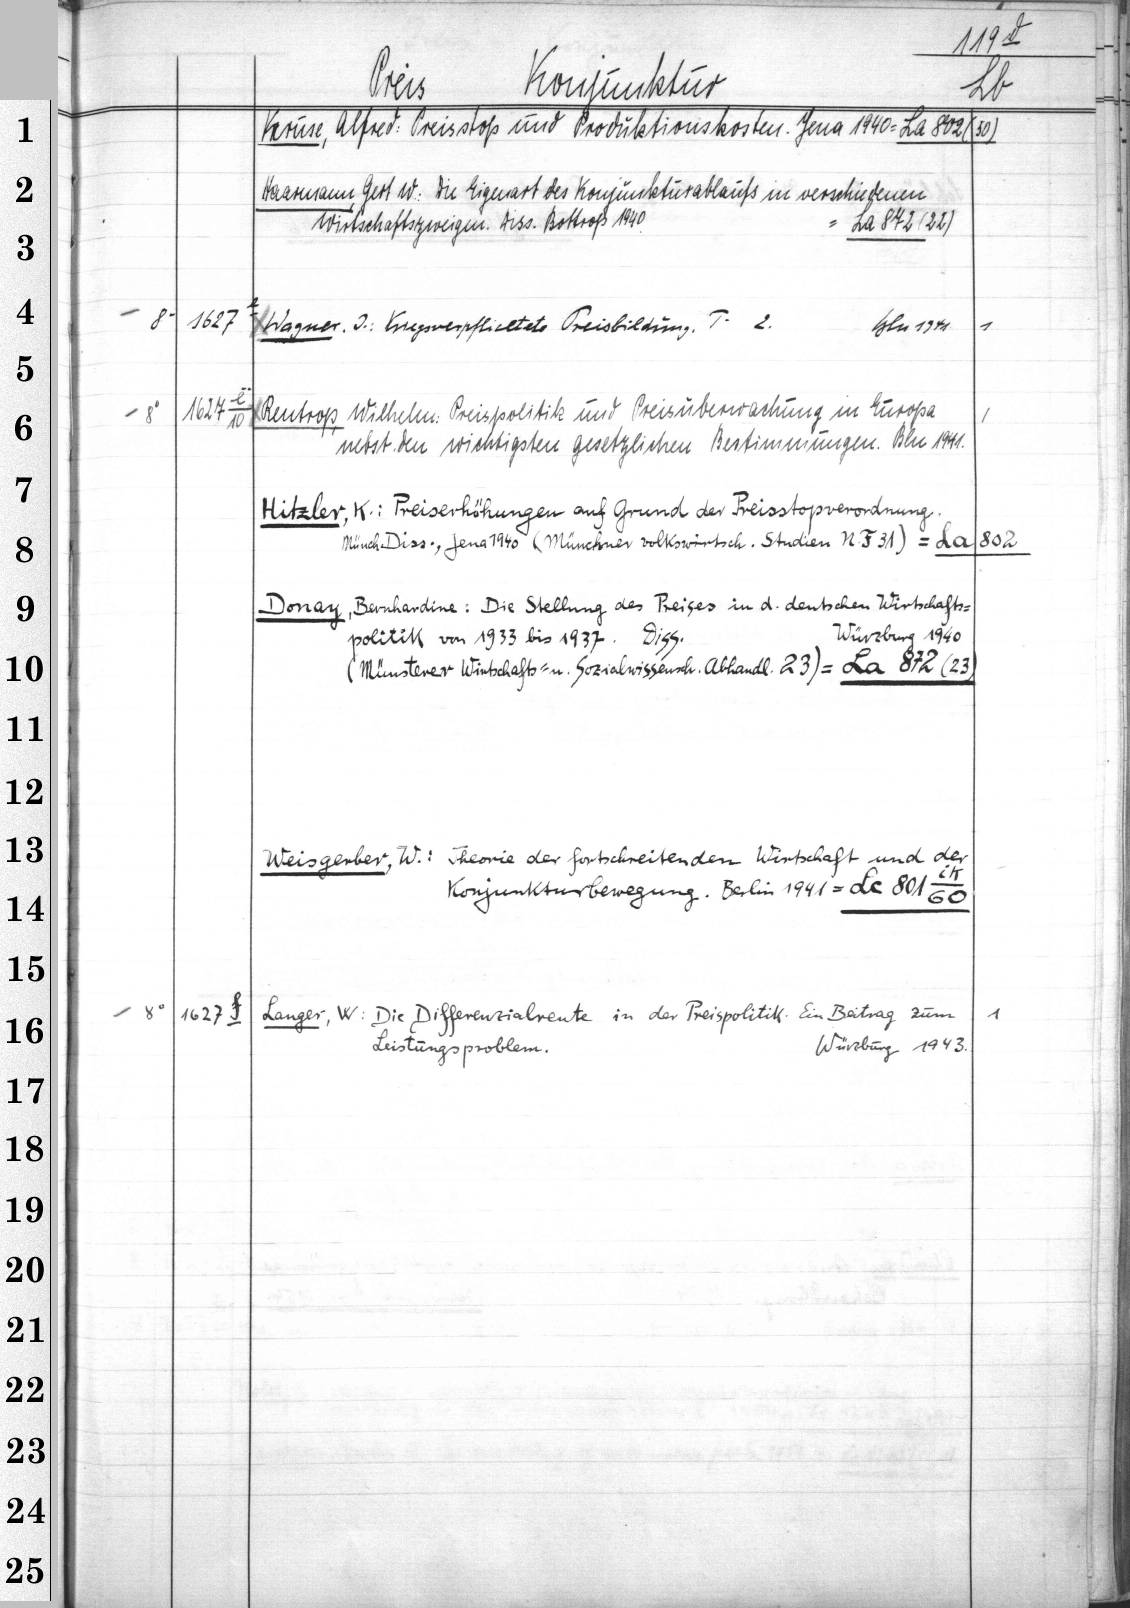 119 d
Preis Konjunktur Lb
1
Kruse, Alfred: Preisstop und Produktionskosten. Jena 1940 = La 802 (50)
2
Haarmann, Gert W.: Die Eigenart des Konjunkturablaufs in verschiedenen
Wirtschaftszweigen. Diss. Bottrop 1940. = La 872 (22)
3
4
8° 1627 Wagner, J.: Kriegsverpflichtete Preisbildung. T. 2. Bln 1941 1
5
8° 1627 i/10 Rentrop, Wilhelm: Preispolitik und Preisüberwachung in Europa 1
6
nebst den wichtigsten gesetzlichen Bestimmungen. Bln 1941.
7
Hitzler, K.: Preiserhöhungen auf Grund der Preisstopverordnung.
8
Münch. Diss., Jena 1940 (Münchner volkswirtsch. Studien N.F 31) = La 802
9
Donay, Bernhardine: Die Stellung des Preises in d. deutschen Wirtschafts=
politik von 1933 bis 1937. Diss. Würzburg 1940
10
(Münsterer Wirtschafts= u. Sozialwissensch. Abhandl. 23) = La 872 (23)
11
12
13
Weisgerber, W.: Theorie der fortschreitenden Wirtschaft und der
Konjunkturbewegung. Berlin 1941 = Lc 801 ik/60
14
15
8° 1627 f Langer, W: Die Differenzialrente in der Preispolitik. Ein Beitrag zum 1
16
Leistungsproblem. Würzburg 1943.
17
18
19
20
21
22
23
24
25